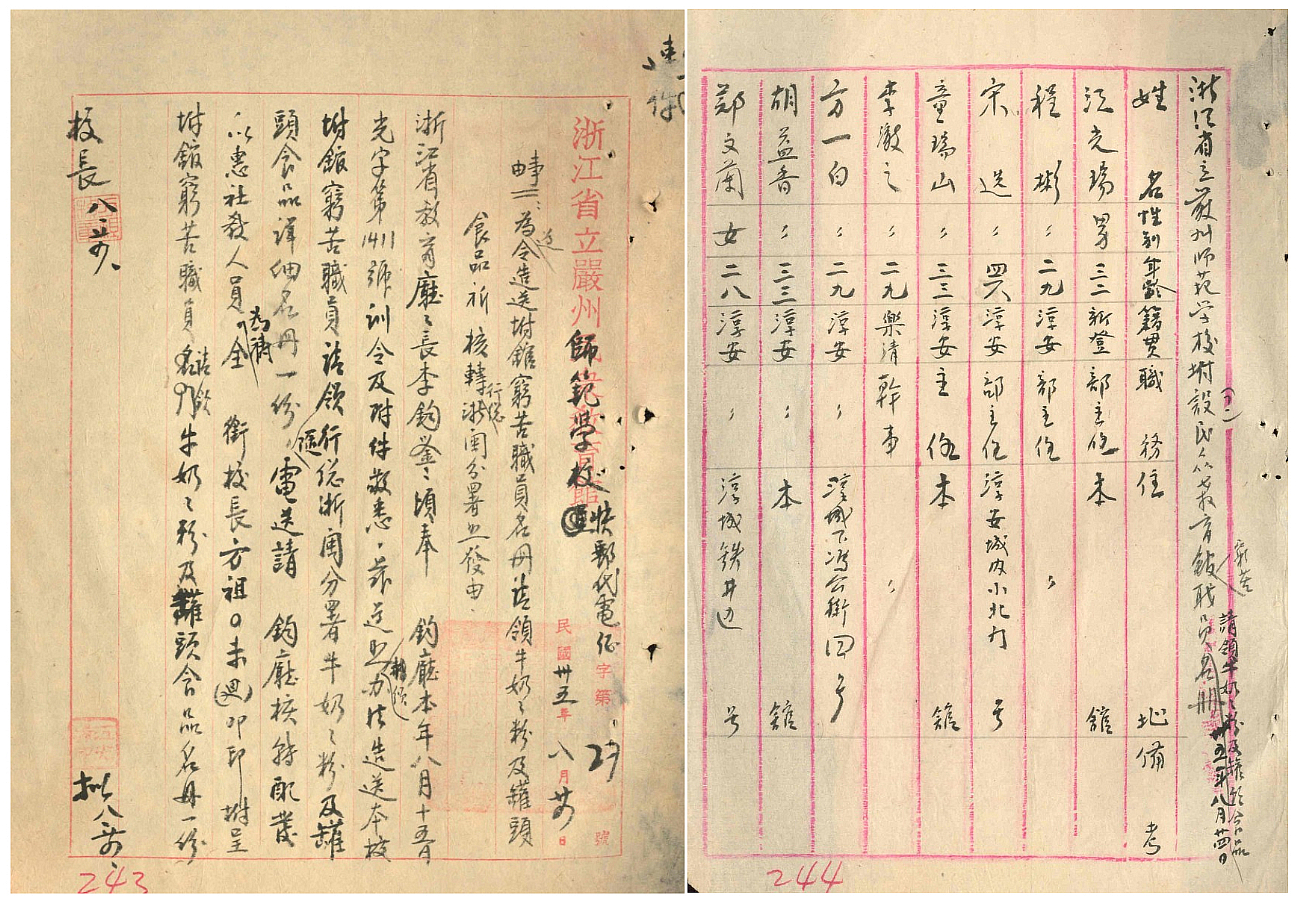 速件
浙江省立嚴州師範學校快郵代電 字第29號
民國卅五年八月廿四日
事由:為令造送坿館窮苦職員名冊請領牛奶、粉及罐頭
食品祈核轉行總浙閩分署照發由
浙江省教育廳廳長李鈞鑒:頃奉 鈞廳本年八月十五日
光字第1411號訓令及附件敬悉,茲遵照辦法造送本校
坿館窮苦職員請領行總浙閩分署牛奶、粉及罐
頭食品詳細名冊一份,電送請 鈞廳核轉配發
以惠社教人員,為禱 全銜校長方祖〇未迴叩印坿呈
坿館窮苦職員請領牛奶、粉及罐頭食品名冊一份
校長
擬八
243
浙江省立嚴州師范学校坿設民众教育館窮苦職員請領牛奶、粉及罐頭食品名冊 卅五年八月廿四日
姓名 性別 年齡 籍貫 職務 住址 備考
江光瑒 男 三二 新登 部主任 本館
程彬 〃 二九 淳安 部主任 〃
宋選 〃 四六 淳安 部主任 淳安城内小北门 号
童瑞山 〃 三三 淳安 主任 本館
李澂之 〃 二九 樂清 幹事 〃
方一白 〃 二九 淳安 〃 淳城下馮公衖四号
胡益香 〃 三三 淳安 〃 本館
鄭文蘭 女 二八 淳安 〃 淳城鉄井边 号
244